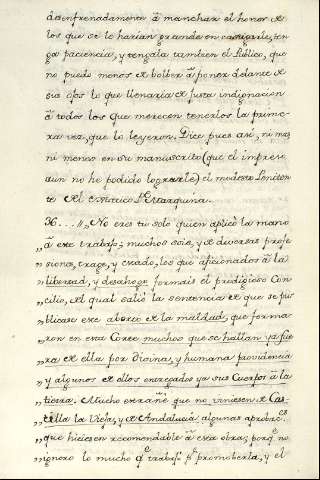 desenfrenadamente à manchar el honor de
los que se le harian grande en castigarle, ten-
ga paciencia, y tengala tambien el Publico, que
no puedo menos de bolver à poner delante de
sus ojos lo que llenaria de justa indignacion
à todos los que merecen tenerlos la prime-
ra vez, que lo leyeron. Dice pues asi, ni mas
ni menos en su manuscrito (que el impreso
aun no he podido lograrle) el modesto Peniten-
te del Estatico
36....1 „No eres tu solo quien aplicò la mano
„ à ese trabajo; muchos sois, y de diversas profe-
„ siones, trage, y estado, los que aficionados à la
„ libertad, y desahogo formais el prodigioso Con-
„ cilio, del qual saliò la sentencia de que se pu-
„ blicase ese aborto de la maldad, que forma-
„ ron en esta Corte muchos que se hallan ya fue-
„ ra de ella por Divina, y humana providencia
„ y algunos de ellos entregados ya sus Cuerpos à la
„ tierra. Mucho estrañè que no viniesen de Cas-
„ tilla la Vieja, y de Andalucia algunas aprobac.es
„ que hiciesen recomendable à esta obra; porq.e no
„ ignoro lo mucho q.e trabajò p.r promoverla, y el